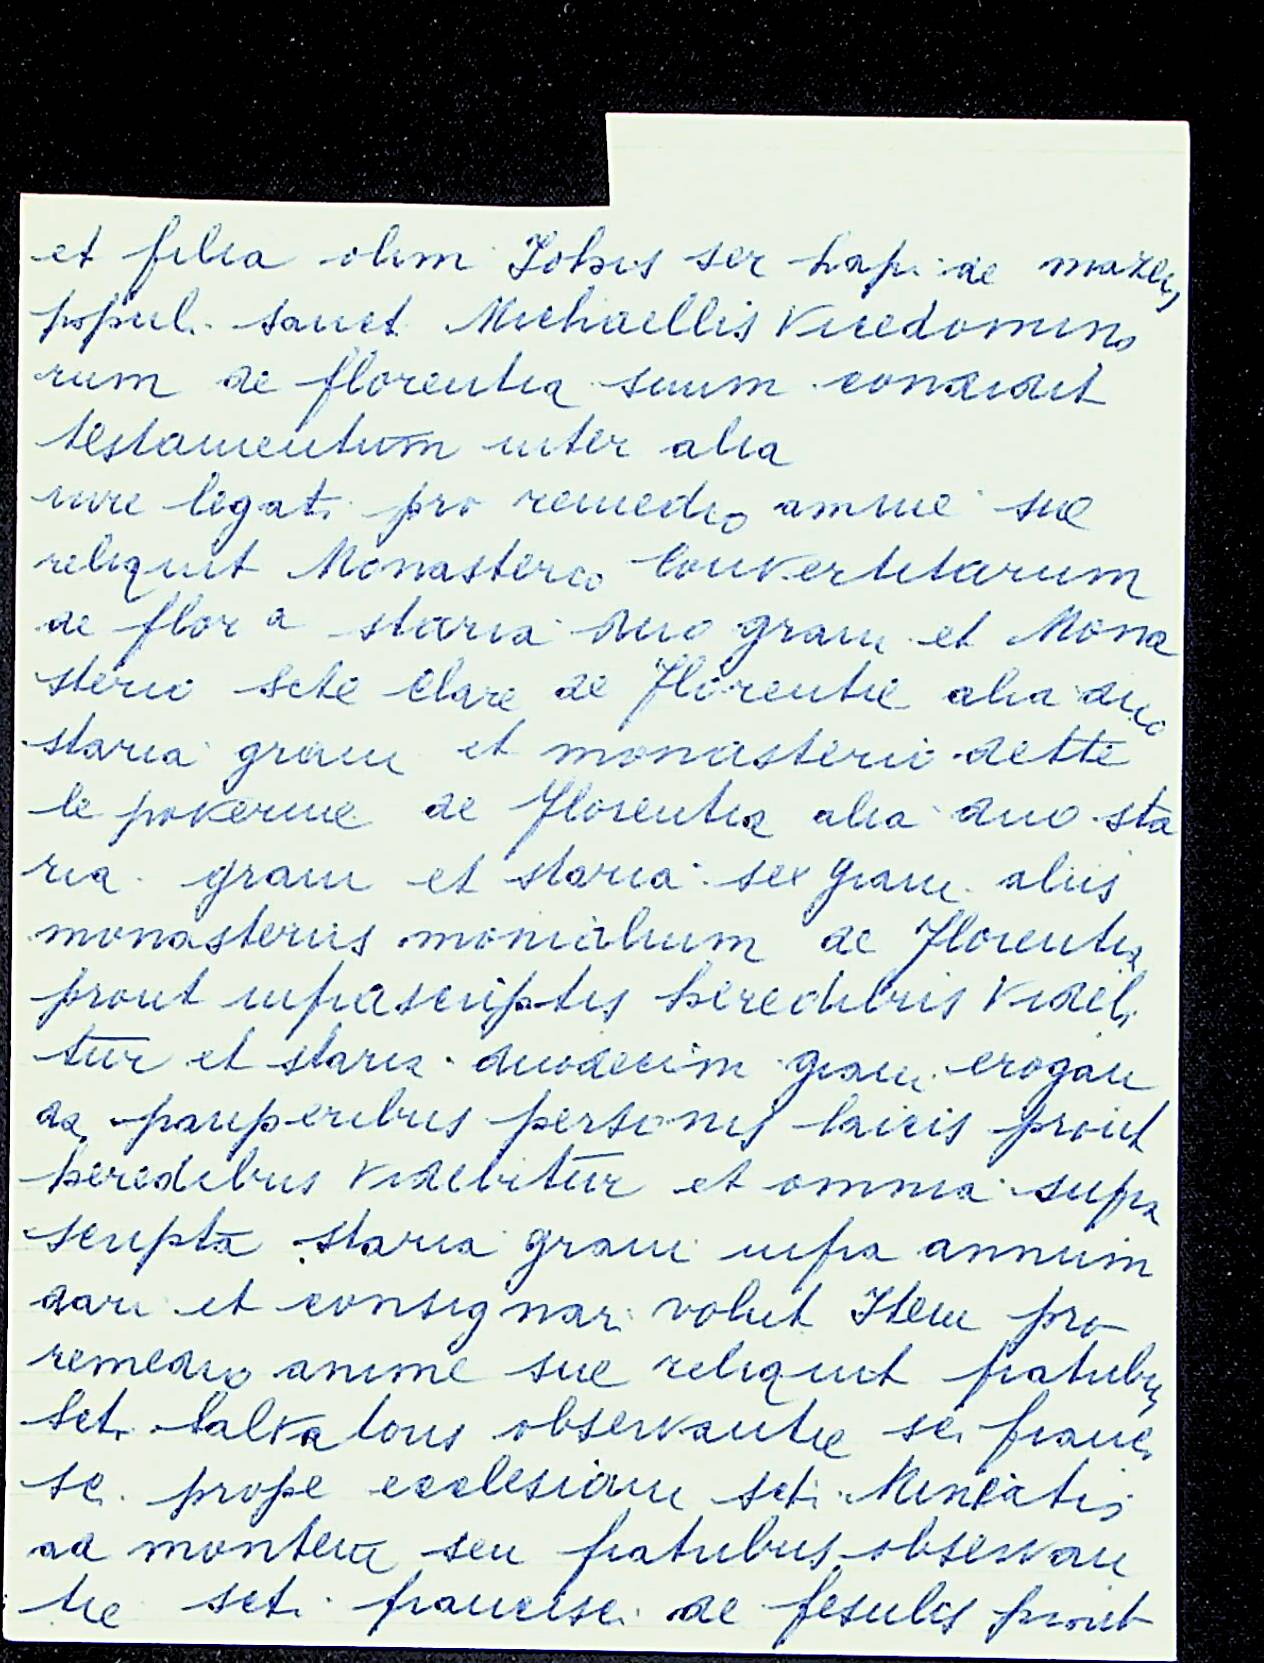 et filia olim Johis ser Lapi de mazeis
popul. sanct. Michaellis Vicedomino
rum de florentia suum condidit
testamentum inter alia
iure legati pro remedio anime sue
reliquit Monasterio Convertitarum
de flor a staria duo grani et Mona
sterio scte Clare de Florentie alia duo
staria grani et monasterio dette
le poverine de Florentia alia duo sta
ria grani et staria sex grani aliis
monasteriis monialium de Florentia
prout infrascriptis heredibus videbi
tur et staria duodecim grani erogan
da pauperibus personis laicis prout
heredibus videbitur et omnia supra
scripta staria grani infra annum
dari et consignari voluit Item pro
remedio anime sue reliquit fratribus
Sct. Salvatoris observantie sci. franci
sci. prope ecclesiam scti. Miniatis
ad montem seu fratribus observan
tie scti. francisci de fesulis prout